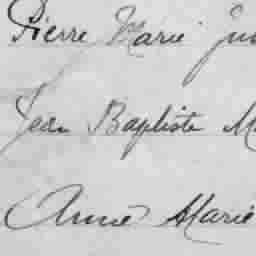 Pierre Marie
Jean Baptiste
Anne Marie